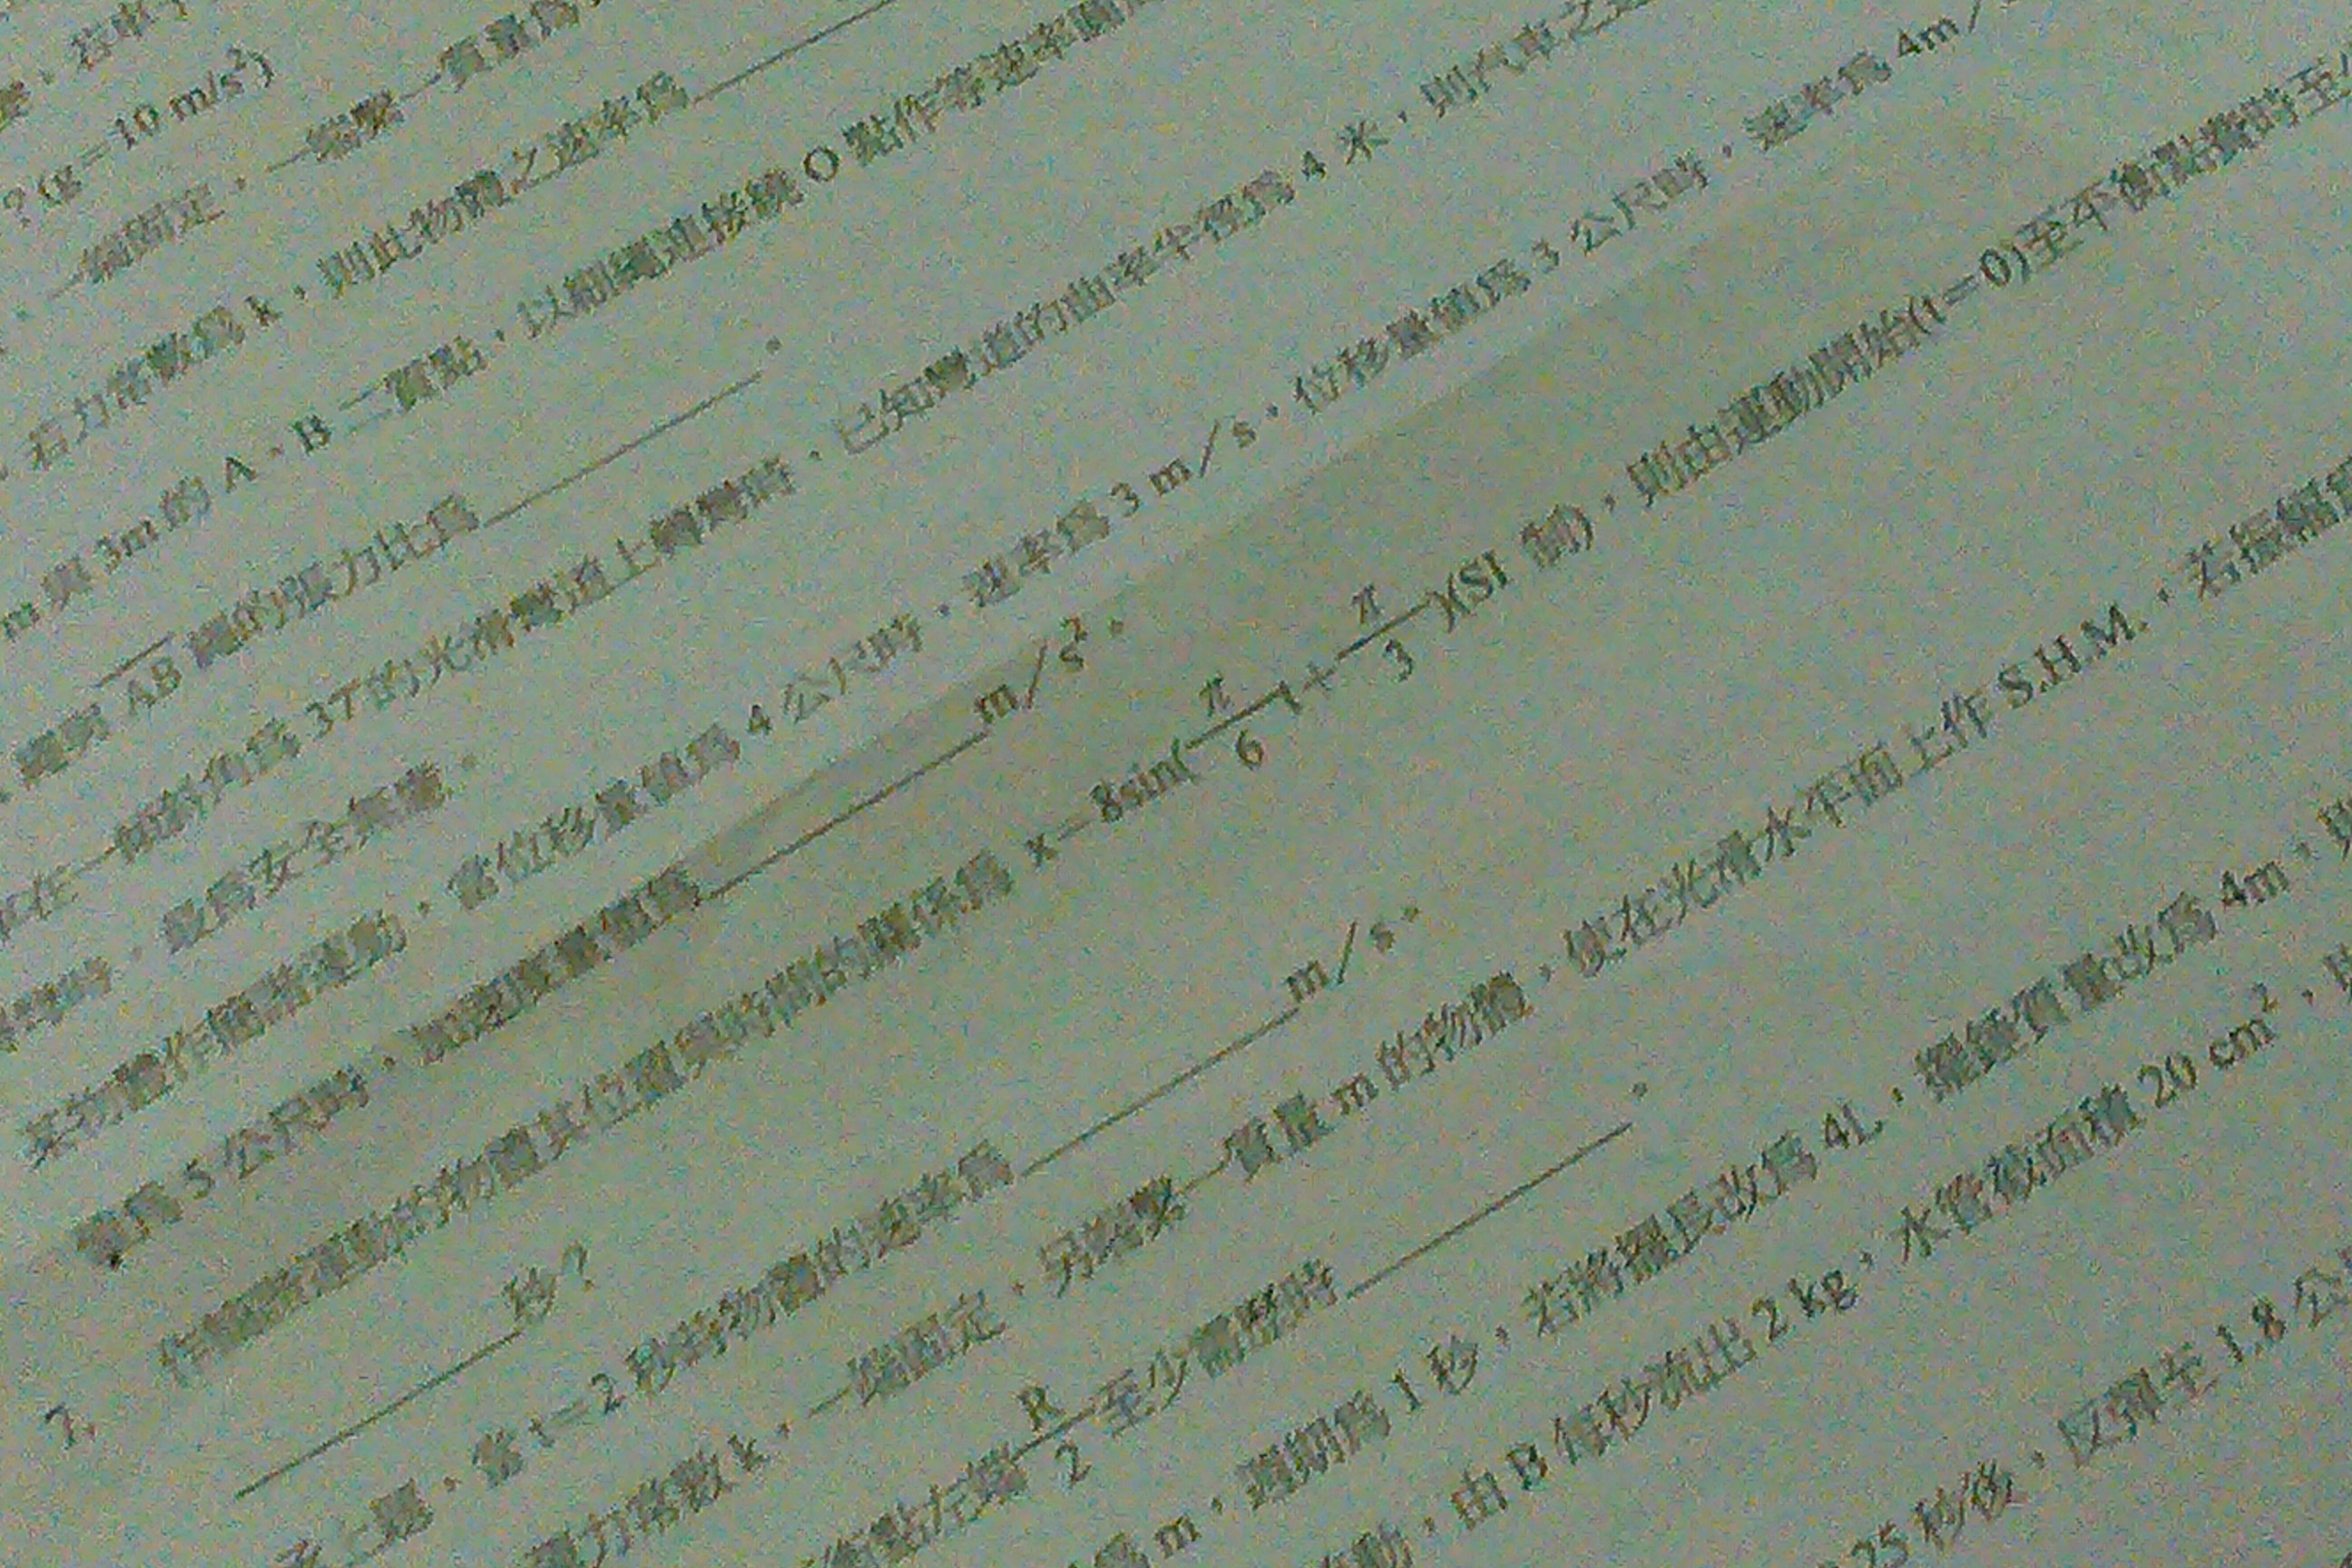 ？(g＝10 m/s²)
一端固定，一端繫一質量為
，若力常數為 k，則此物體之速率為
m 與 3m 的 A、B 二質點，以細繩連接繞 O 點作等速率圓
繩與 AB 繩的張力比為 。
在一傾斜角為 37°的光滑彎道上轉彎時，已知彎道的曲率半徑為 4 米，則汽車之速
時，最為安全無慮。
某物體作簡諧運動，當位移量值為 4 公尺時，速率為 3 m／s，位移量值為 3 公尺時，速率為 4m／
量為 5 公尺時，加速度量值為 m／s²。
7. 作簡諧運動的物體其位置與時間的關係為 x＝8sin(π/6 t＋π/3)(SI 制)，則由運動開始(t＝0)至平衡點費時至少
秒？
承上題，當 t＝2 秒時物體的速率為 m／s。
力常數 k，一端固定，另端繫一質量 m 的物體，使在光滑水平面上作 S.H.M.，若振幅
衡點左端 R/2 至少需歷時 。
為 m，週期為 1 秒，若將擺長改為 4L，擺錘質量改為 4m，則
動，由 B 每秒流出 2 kg，水管截面積 20 cm²，
25 秒後，反彈至 1.8 公